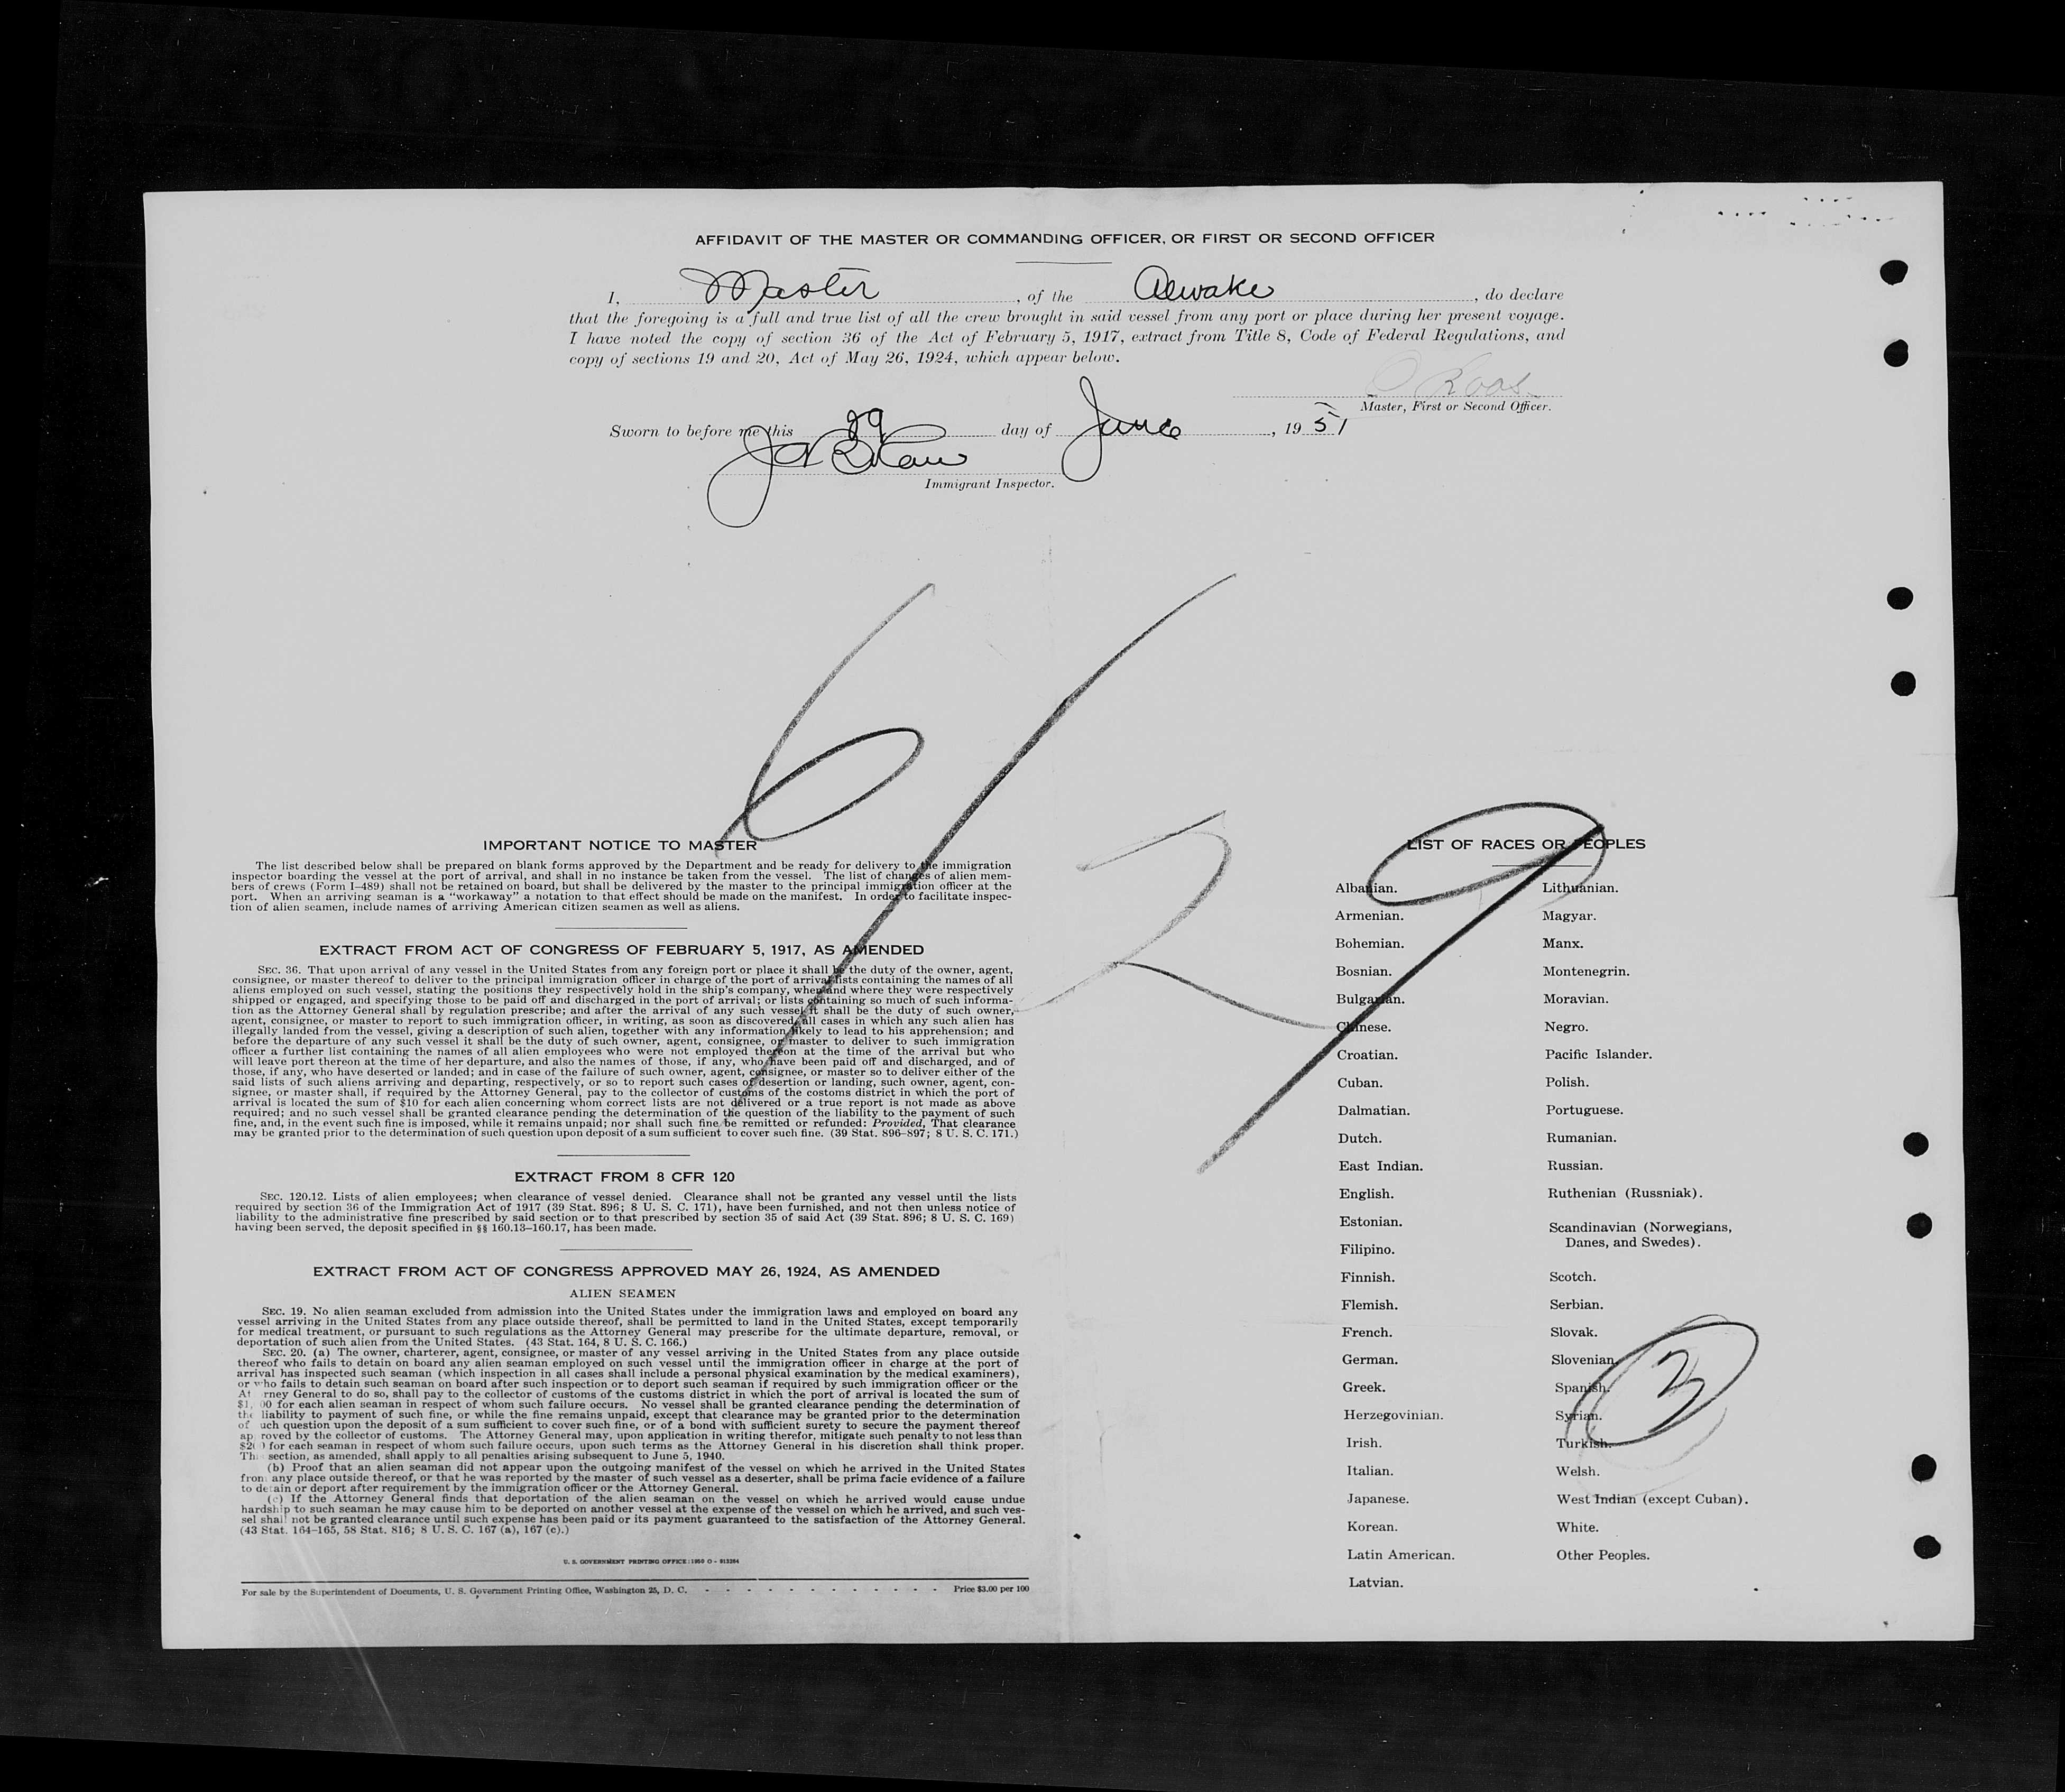 AFFIDAVIT OF THE MASTER OR COMMANDING OFFICER, OR FIRST OR SECOND OFFICER
I, Master, of the Alwaki, do declare
that the foregoing is a full and true list of all the crew brought in said vessel from any port or place during her present voyage.
I have noted the copy of section 36 of the Act of February 5, 1917, extract from Title 8, Code of Federal Regulations, and
copy of sections 19 and 20, Act of May 26, 1924, which appear below.
Master, First or Second Officer.
Sworn to before me this 29 day of June, 1951
Immigrant Inspector.
6/29
IMPORTANT NOTICE TO MASTER
The list described below shall be prepared on blank forms approved by the Department and be ready for delivery to the immigration
inspector boarding the vessel at the port of arrival, and shall in no instance be taken from the vessel. The list of changes of alien mem-
bers of crews (Form I-489) shall not be retained on board, but shall be delivered by the master to the principal immigration officer at the
port. When an arriving seaman is a "workaway" a notation to that effect should be made on the manifest. In order to facilitate inspec-
tion of alien seamen, include names of arriving American citizen seamen as well as aliens.
EXTRACT FROM ACT OF CONGRESS OF FEBRUARY 5, 1917, AS AMENDED
SEC. 36. That upon arrival of any vessel in the United States from any foreign port or place it shall be the duty of the owner, agent,
consignee, or master thereof to deliver to the principal immigration officer in charge of the port of arrival lists containing the names of all
aliens employed on such vessel, stating the positions they respectively hold in the ship's company, when and where they were respectively
shipped or engaged, and specifying those to be paid off and discharged in the port of arrival; or lists containing so much of such informa-
tion as the Attorney General shall by regulation prescribe; and after the arrival of any such vessel it shall be the duty of such owner,
agent, consignee, or master to report to such immigration officer, in writing, as soon as discovered, all cases in which any such alien has
illegally landed from the vessel, giving a description of such alien, together with any information likely to lead to his apprehension; and
before the departure of any such vessel it shall be the duty of such owner, agent, consignee, or master to deliver to such immigration
officer a further list containing the names of all alien employees who were not employed thereon at the time of the arrival but who
will leave port thereon at the time of her departure, and also the names of those, if any, who have been paid off and discharged, and of
those, if any, who have deserted or landed; and in case of the failure of such owner, agent, consignee, or master so to deliver either of the
said lists of such aliens arriving and departing, respectively, or so to report such cases of desertion or landing, such owner, agent, con-
signee, or master shall, if required by the Attorney General, pay to the collector of customs of the costoms district in which the port of
arrival is located the sum of $10 for each alien concerning whom correct lists are not delivered or a true report is not made as above
required; and no such vessel shall be granted clearance pending the determination of the question of the liability to the payment of such
fine, and, in the event such fine is imposed, while it remains unpaid; nor shall such fine be remitted or refunded: Provided, That clearance
may be granted prior to the determination of such question upon deposit of a sum sufficient to cover such fine. (39 Stat. 896-897; 8 U. S. C. 171.)
EXTRACT FROM 8 CFR 120
SEC. 120.12. Lists of alien employees; when clearance of vessel denied. Clearance shall not be granted any vessel until the lists
required by section 36 of the Immigration Act of 1917 (39 Stat. 896; 8 U. S. C. 171), have been furnished, and not then unless notice of
liability to the administrative fine prescribed by said section or to that prescribed by section 35 of said Act (39 Stat. 896; 8 U. S. C. 169)
having been served, the deposit specified in §§ 160.13-160.17, has been made.
EXTRACT FROM ACT OF CONGRESS APPROVED MAY 26, 1924, AS AMENDED
ALIEN SEAMEN
SEC. 19. No alien seaman excluded from admission into the United States under the immigration laws and employed on board any
vessel arriving in the United States from any place outside thereof, shall be permitted to land in the United States, except temporarily
for medical treatment, or pursuant to such regulations as the Attorney General may prescribe for the ultimate departure, removal, or
deportation of such alien from the United States. (43 Stat. 164, 8 U. S. C. 166.)
SEC. 20. (a) The owner, charterer, agent, consignee, or master of any vessel arriving in the United States from any place outside
thereof who fails to detain on board any alien seaman employed on such vessel until the immigration officer in charge at the port of
arrival has inspected such seaman (which inspection in all cases shall include a personal physical examination by the medical examiners),
or who fails to detain such seaman on board after such inspection or to deport such seaman if required by such immigration officer or the
At rney General to do so, shall pay to the collector of customs of the customs district in which the port of arrival is located the sum of
$1, 00 for each alien seaman in respect of whom such failure occurs. No vessel shall be granted clearance pending the determination of
the liability to payment of such fine, or while the fine remains unpaid, except that clearance may be granted prior to the determination
of uch question upon the deposit of a sum sufficient to cover such fine, or of a bond with sufficient surety to secure the payment thereof
ap roved by the collector of customs. The Attorney General may, upon application in writing therefor, mitigate such penalty to not less than
$20 for each seaman in respect of whom such failure occurs, upon such terms as the Attorney General in his discretion shall think proper.
Th section, as amended, shall apply to all penalties arising subsequent to June 5, 1940.
(b) Proof that an alien seaman did not appear upon the outgoing manifest of the vessel on which he arrived in the United States
from any place outside thereof, or that he was reported by the master of such vessel as a deserter, shall be prima facie evidence of a failure
to detain or deport after requirement by the immigration officer or the Attorney General.
(c) If the Attorney General finds that deportation of the alien seaman on the vessel on which he arrived would cause undue
hardship to such seaman he may cause him to be deported on another vessel at the expense of the vessel on which he arrived, and such ves-
sel shall not be granted clearance until such expense has been paid or its payment guaranteed to the satisfaction of the Attorney General.
(43 Stat. 164-165, 58 Stat. 816; 8 U. S. C. 167 (a), 167 (c).)
U. S. GOVERNMENT PRINTING OFFICE: 1950 O - 913364
For sale by the Superintendent of Documents, U. S. Government Printing Office, Washington 25, D. C. - - - - - - - - - - - - - Price $3.00 per 100
LIST OF RACES OR PEOPLES
Albanian.
Armenian.
Bohemian.
Bosnian.
Bulgarian.
Chinese.
Croatian.
Cuban.
Dalmatian.
Dutch.
East Indian.
English.
Estonian.
Filipino.
Finnish.
Flemish.
French.
German.
Greek.
Herzegovinian.
Irish.
Italian.
Japanese.
Korean.
Latin American.
Latvian.
Lithuanian.
Magyar.
Manx.
Montenegrin.
Moravian.
Negro.
Pacific Islander.
Polish.
Portuguese.
Rumanian.
Russian.
Ruthenian (Russniak).
Scandinavian (Norwegians,
Danes, and Swedes).
Scotch.
Serbian.
Slovak.
Slovenian.
Spanish.
Syrian.
Turkish.
Welsh.
West Indian (except Cuban).
White.
Other Peoples.
3